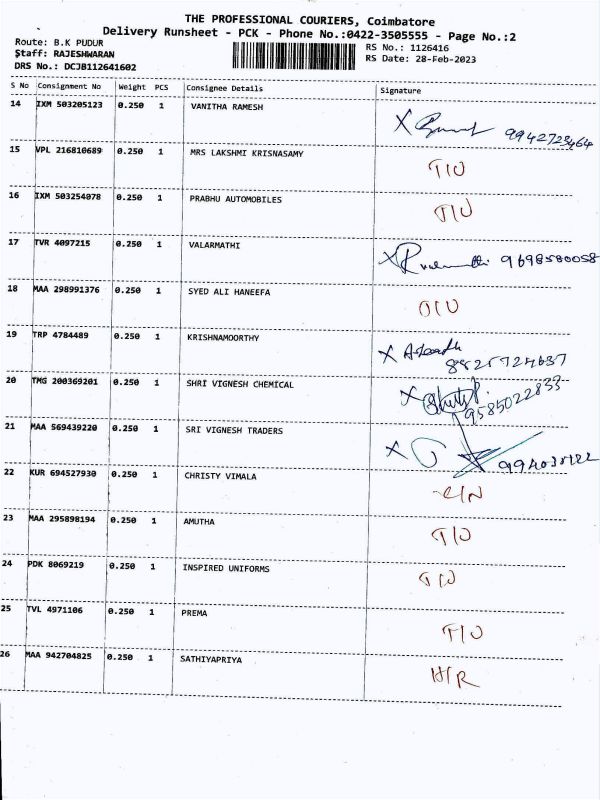 THE PROFESSIONAL COURIERS, Coimbatore
Delivery Runsheet - PCK - Phone No.:0422-3505555 - Page No.:2
Route: B.K PUDUR
Staff: RAJESHWARAN
DRS No.: DCJB112641602
RS No.: 1126416
RS Date: 28-Feb-2023
S No Consignment No Weight PCS Consignee Details Signature
14 IXM 503205123 0.250 1 VANITHA RAMESH X 9942723464
15 VPL 216810689 0.250 1 MRS LAKSHMI KRISNASAMY T/O
16 IXM 503254078 0.250 1 PRABHU AUTOMOBILES T/O
17 TVR 4097215 0.250 1 VALARMATHI X 9698580058
18 MAA 298991376 0.250 1 SYED ALI HANEEFA O/O
19 TRP 4784489 0.250 1 KRISHNAMOORTHY X
20 TMG 200369201 0.250 1 SHRI VIGNESH CHEMICAL X 9585022833
21 MAA 569439220 0.250 1 SRI VIGNESH TRADERS X
22 KUR 694527930 0.250 1 CHRISTY VIMALA
23 MAA 295898194 0.250 1 AMUTHA T/O
24 PDK 8069219 0.250 1 INSPIRED UNIFORMS T/O
25 TVL 4971106 0.250 1 PREMA T/O
26 MAA 942704825 0.250 1 SATHIYAPRIYA H/R